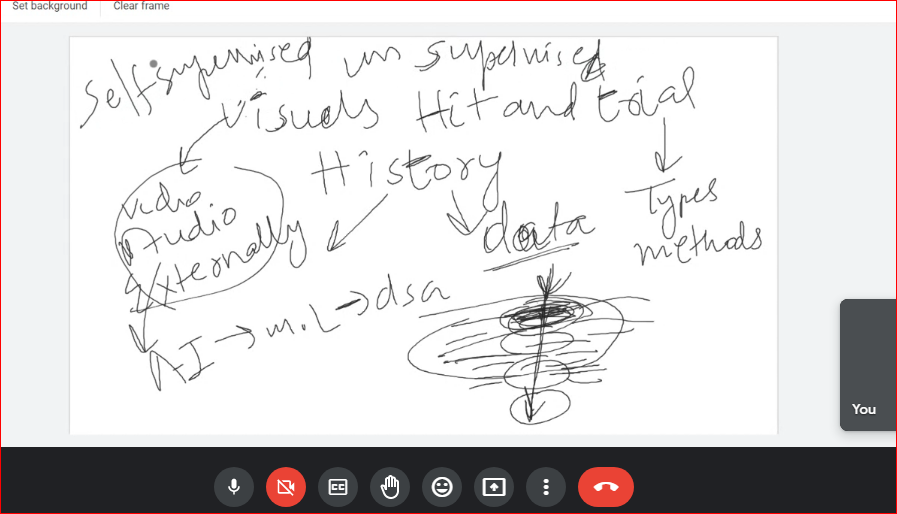 Set background Clear frame
Self supervised un supervised
Visuals Hit and trial
History
video
Audio
Externally
data
Types
methods
AI → m.L → dsa
You
CC